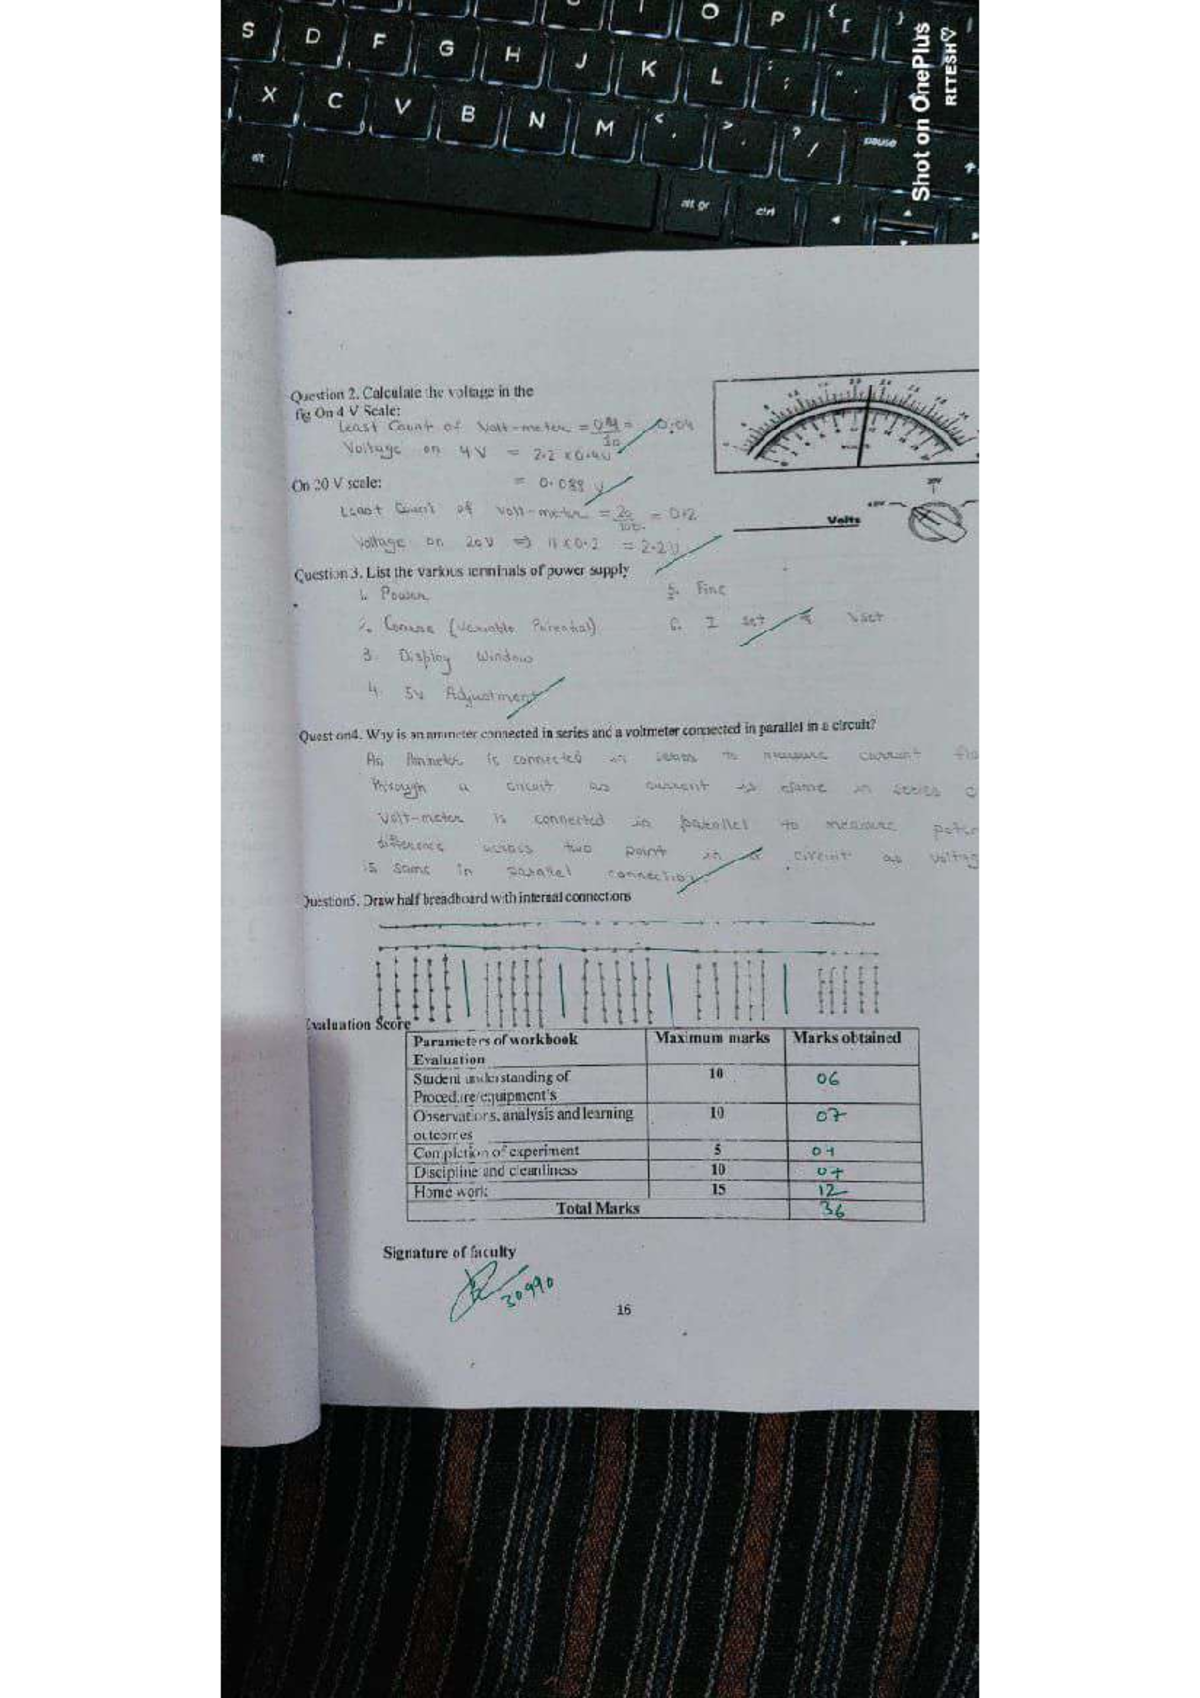 O P { [ }
S D F G H J K L : ; " '
X C V B N M < , > . ? / pause
alt alt gr ctrl
Shot on OnePlus
RITESH♡
Question 2. Calculate the voltage in the
fig On 4 V Scale:
Least Count of Volt-meter = = 0.04
Voltage on 4V = 2.2 x 0.4v
= 0.088 V
On 20 V scale:
Least Count of Volt-meter = 20 = 0.2
Voltage on 20V => 11 x 0.2 = 2.2V
Volts
Question 3. List the various terminals of power supply
1. Power
5. Fine
2. Coarse (Variable Potential)
6. I set & Vset
3. Display Window
4. 5v Adjustment
Question4. Why is an ammeter connected in series and a voltmeter connected in parallel in a circuit?
An Ammeter is connected in series to measure current
through a circuit as current is same in series
Volt-meter is connected in parallel to measure
difference across two point in a circuit as
is same in parallel connection.
Question5. Draw half breadboard with internal connections
Evaluation Score
Parameters of workbook Evaluation Maximum marks Marks obtained
Student understanding of Procedure/equipment's 10 06
Observations, analysis and learning outcomes 10 07
Completion of experiment 5 04
Discipline and cleanliness 10 07
Home work 15 12
Total Marks 36
Signature of faculty
30990
16